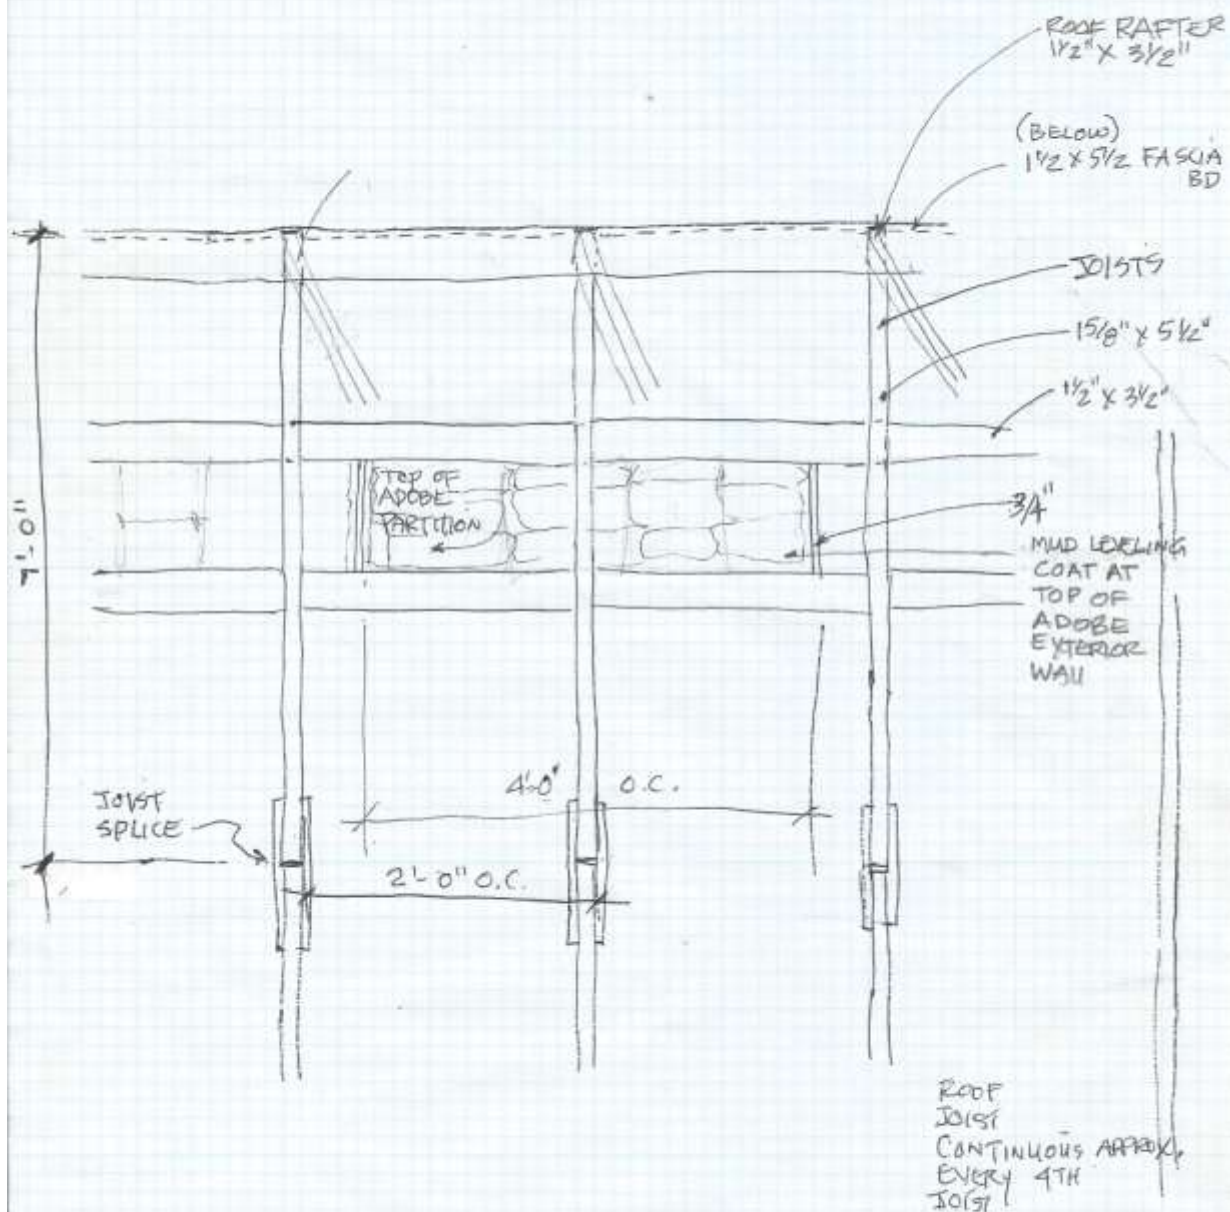 ROOF RAFTER
1 1/2" X 3 1/2"
(BELOW)
1 1/2 X 5 1/2 FASCIA
BD
JOISTS
1 5/8" X 5 1/2"
1 1/2" X 3 1/2"
TOP OF
ADOBE
PARTITION
3/4"
MUD LEVELING
COAT AT
TOP OF
ADOBE
EXTERIOR
WALL
7'-0"
4'-0" O.C.
JOIST
SPLICE
2'-0" O.C.
ROOF
JOIST
CONTINUOUS APPROX.
EVERY 4TH
JOIST